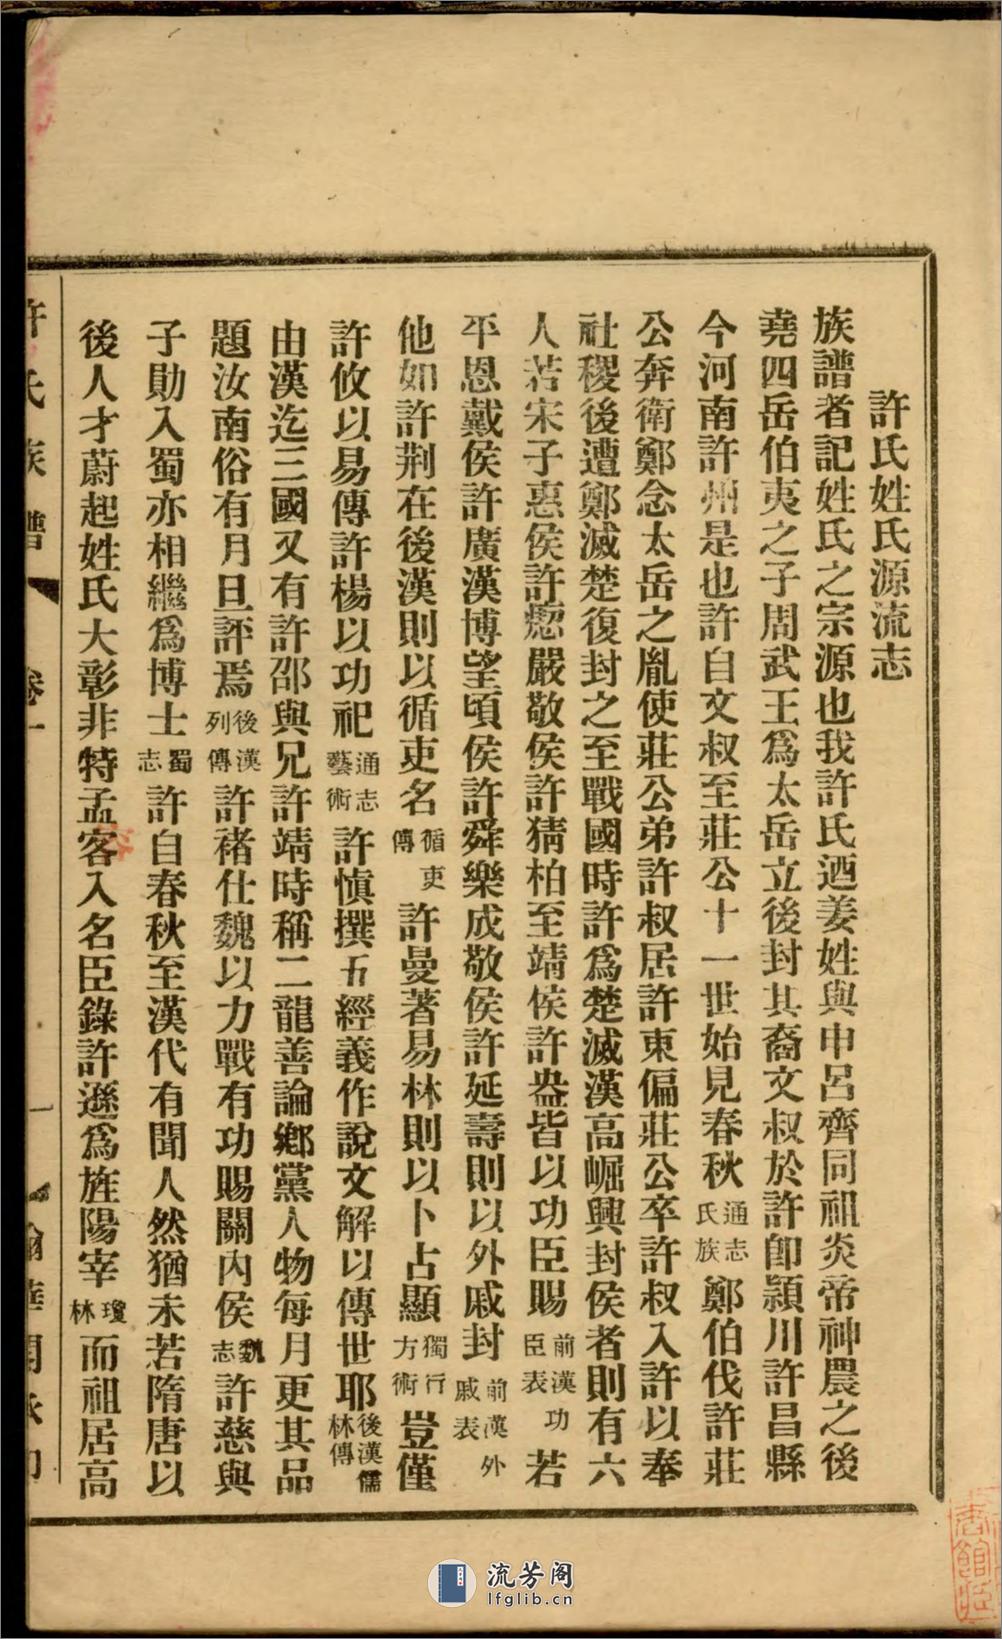 許氏姓氏源流志
族譜者記姓氏之宗源也我許氏迺姜姓與申呂齊同祖炎帝神農之後
堯四岳伯夷之子周武王爲太岳立後封其裔文叔於許卽潁川許昌縣
今河南許州是也許自文叔至莊公十一世始見春秋通志氏族鄭伯伐許莊
公奔衛鄭念太岳之胤使莊公弟許叔居許東偏莊公卒許叔入許以奉
社稷後遭鄭滅楚復封之至戰國時許爲楚滅漢高崛興封侯者則有六
人若宋子惠侯許瘛嚴敬侯許猜柏至靖侯許盎皆以功臣賜前漢功臣表若
平恩戴侯許廣漢博望頃侯許舜樂成敬侯許延壽則以外戚封前漢外戚表
他如許荆在後漢則以循吏名循吏傳許曼著易林則以卜占顯獨行方術豈僅
許攸以易傳許楊以功祀通志藝術許愼撰五經義作說文解以傳世耶後漢儒林傳
由漢迄三國又有許邵與兄許靖時稱二龍善論鄉黨人物每月更其品
題汝南俗有月旦評焉後漢列傳許褚仕魏以力戰有功賜關內侯魏志許慈與
子勛入蜀亦相繼爲博士蜀志許自春秋至漢代有聞人然猶未若隋唐以
後人才蔚起姓氏大彰非特孟容入名臣錄許遜爲旌陽宰瓊林而祖居高
許氏族譜
卷一
一
流芳阁
lfglib.cn